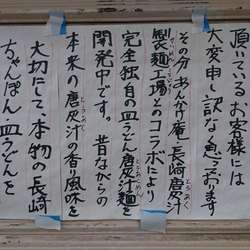 頂いているお客様には
大変申し訳なく思っております
その分あんかけ庵、長崎唐灰汁
製麺工場とのコラボにより
完全独自の皿うどん唐灰汁麺を
開発中です。昔ながらの
本来の唐灰汁の香り風味を
大切にして、本物の長崎
ちゃんぽん・皿うどんを